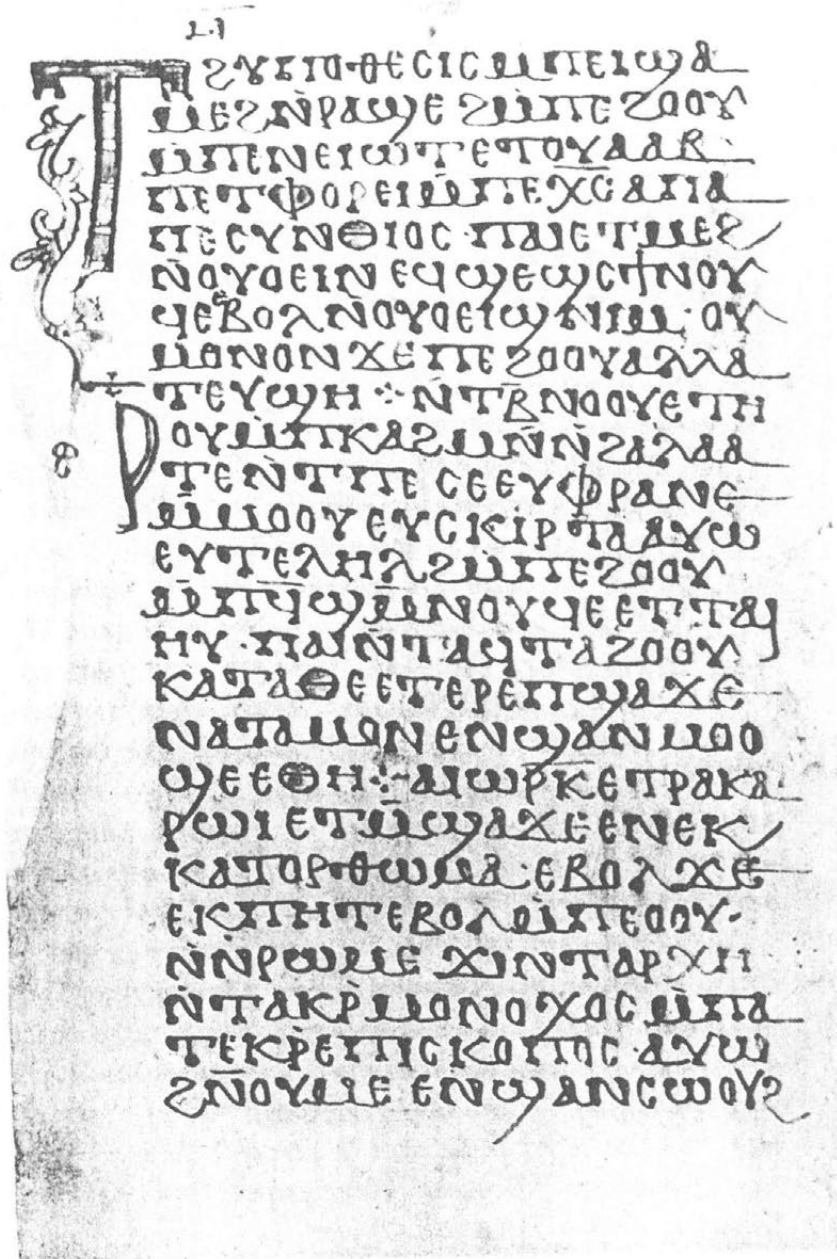 ⲗⲁ
Ⲧϩⲩⲡⲟⲑⲉⲥⲓⲥ ⲙ̅ⲡⲉⲓϣⲁ
ⲙⲉϩⲛ̅ⲣⲁϣⲉ ϩⲙ̅ⲡⲉϩⲟⲟⲩ
ⲙ̅ⲡⲉⲛⲉⲓⲱⲧ ⲉⲧⲟⲩⲁⲁⲃ·
ⲡⲉⲧⲫⲟⲣⲉⲓ ⲙ̅ⲡⲉⲭ̅ⲥ̅ ⲁⲡⲁ
ⲡⲉⲥⲩⲛⲑⲓⲟⲥ· ⲡⲁⲓ ⲉⲧⲙⲉϩ
ⲛ̅ⲟⲩⲟⲉⲓⲛ ⲉϥϣⲉϣⲥϯⲛⲟⲩ
ϥⲉ ⲉⲃⲟⲗ ⲛ̅ⲟⲩⲟⲉⲓϣ ⲛⲓⲙ· ⲟⲩ
ⲙⲟⲛⲟⲛ ϫⲉ ⲡⲉϩⲟⲟⲩ ⲁⲗⲗⲁ
ⲧⲉⲩϣⲏ ⁘ ⲛ̅ⲧⲃ̅ⲛⲟⲟⲩⲉ ⲧⲏ
ⲣⲟⲩ ⲙ̅ⲡⲕⲁϩ ⲙⲛ̅ⲛ̅ϩⲁⲗⲁⲁ
ⲧⲉ ⲛ̅ⲧⲡⲉ ⲥⲉⲉⲩⲫⲣⲁⲛⲉ
ⲙ̅ⲙⲟⲟⲩ ⲉⲩⲥⲕⲓⲣⲧⲁ ⲁⲩⲱ
ⲉⲩⲧⲉⲗⲏⲗ ϩⲙ̅ⲡⲉϩⲟⲟⲩ
ⲙ̅ⲡϥ̅ϣⲙ̅ⲛⲟⲩϥⲉ ⲉⲧⲧⲁⲓ
ⲏⲩ· ⲡⲁⲓ ⲛ̅ⲧⲁϥⲧⲁϩⲟⲟⲩ
ⲕⲁⲧⲁ ⲑⲉ ⲉⲧⲉⲣⲉⲡϣⲁϫⲉ
ⲛⲁⲧⲁⲙⲟⲛ ⲉⲛϣⲁⲛⲙⲟⲟ
ϣⲉ ⲉⲑⲏ ⁘ ⲁⲓⲱⲣⲕ̅ ⲉⲡⲣⲁⲕⲁ
ⲣⲱⲓ ⲉⲧⲙ̅ϣⲁϫⲉ ⲉⲛⲉⲕ
ⲕⲁⲧⲟⲣⲑⲱⲙⲁ· ⲉⲃⲟⲗ ϫⲉ
ⲉⲕⲡⲏⲧ ⲉⲃⲟⲗ ⲙ̅ⲡⲉⲟⲟⲩ·
ⲛ̅ⲛ̅ⲣⲱⲙⲉ ϫⲓⲛ ⲧⲁⲣⲭⲏ
ⲛ̅ⲧⲁⲕⲣ̅ⲙⲟⲛⲟⲭⲟⲥ ⲙ̅ⲡⲁ
ⲧⲉⲕⲣ̅ⲉⲡⲓⲥⲕⲟⲡⲟⲥ ⲁⲩⲱ
ϩⲛ̅ⲟⲩⲙⲉ ⲉⲛϣⲁⲛⲥⲱⲟⲩϩ